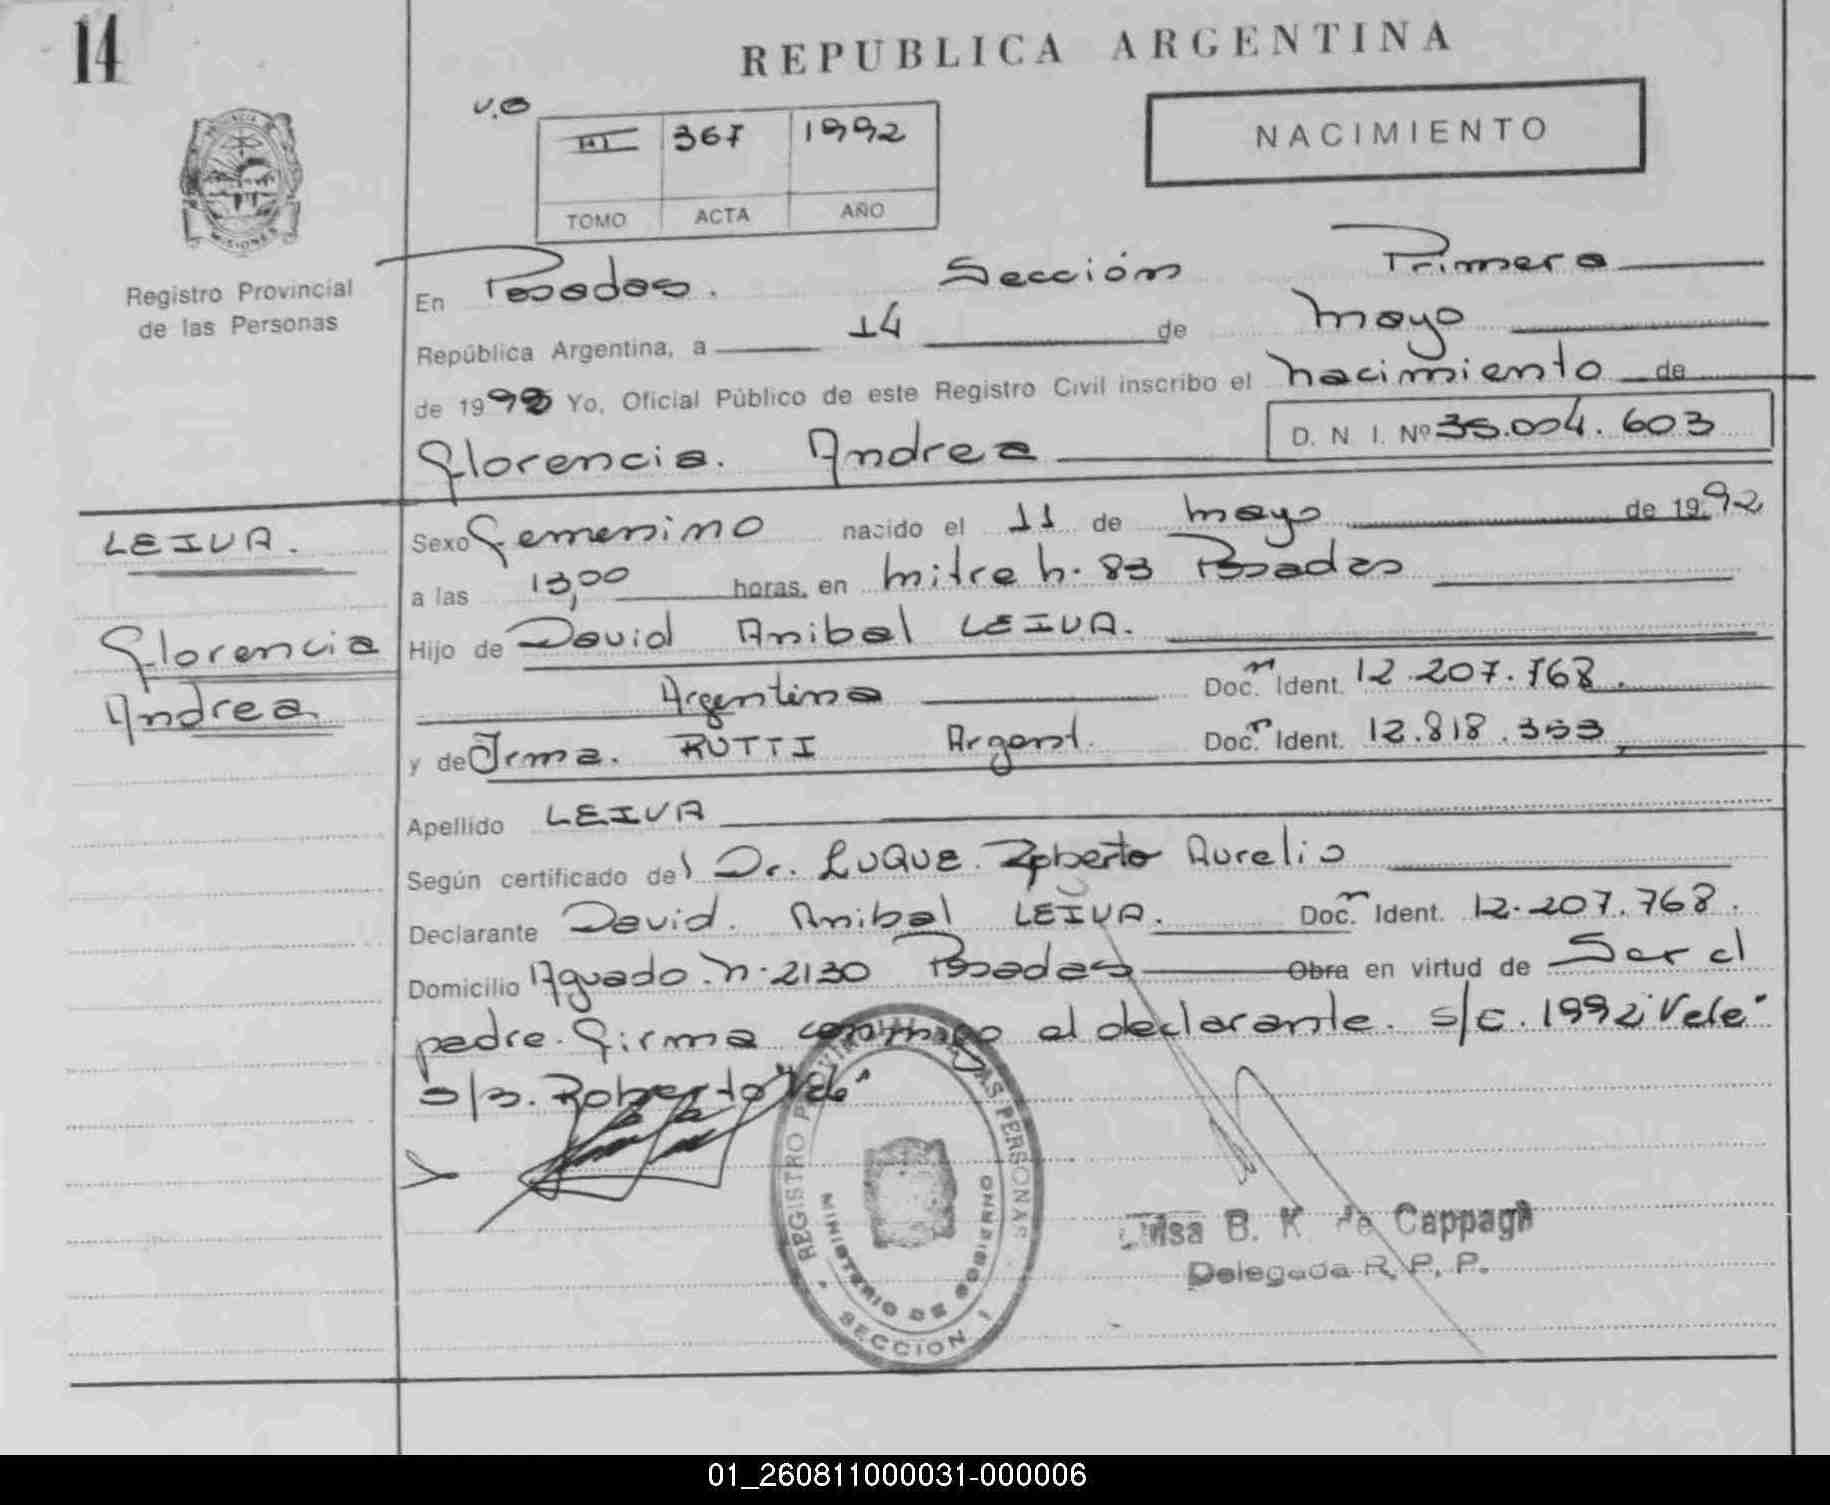 14
REPUBLICA ARGENTINA
III 367 1992
TOMO ACTA AÑO
NACIMIENTO
PROVINCIA DE MISIONES
Registro Provincial
de las Personas
En Posadas. Sección Primera
República Argentina, a 14 de mayo
de 1992 Yo, Oficial Público de este Registro Civil inscribo el nacimiento de
Florencia. Andrea D. N. I. Nº 35.004.603
LEIVA.
Florencia
Andrea
Sexo Femenino nacido el 11 de mayo de 1992
a las 13,00 horas, en mitre n. 83 Posadas
Hijo de David Anibal LEIVA.
Argentino Doc. n Ident. 12.207.768.
y de Irma. RUTTI Argent. Doc. n Ident. 12.818.353
Apellido LEIVA
Según certificado del Dr. LUQUE Roberto Aurelio
Declarante David. Anibal LEIVA. Doc. n Ident. 12.207.768.
Domicilio Aguado. n. 2130 Posadas Obra en virtud de Ser el
padre. firma conmigo el declarante. s/c. 1992 "Vale"
s/b. Roberto "Vale"
REGISTRO PROVINCIAL DE LAS PERSONAS
MINISTERIO DE GOBIERNO
SECCION 1
B. K. de Cappagli
Delegada R. P. P.
01_260811000031-000006